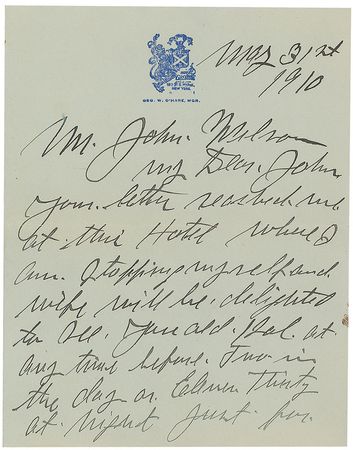 NEW YORK.
GEO. W. O'HARE, MGR.
May 31st
1910
Mr. John. Wilson
my Dear. John
your. letter reached me
at this Hotel where I
am. Stopping myself and
wife will be. delighted
to see. you old. Pal. at
any time before. Two in
the day or Eleven Thirty
at night just for.